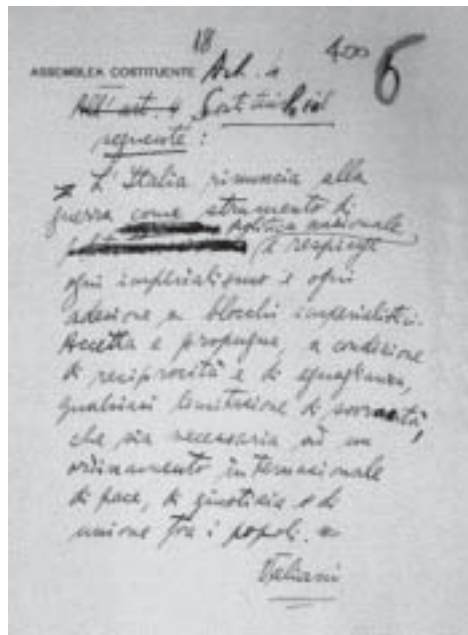 18
400 6
ASSEMBLEA COSTITUENTE Art. 4
All'art. 4 Sostituire il
seguente:
"L'Italia rinuncia alla
guerra come strumento di
politica nazionale
e respinge
ogni imperialismo e ogni
adesione a blocchi imperialistici.
Accetta e propugna, a condizione
di reciprocità e di eguaglianza,
qualsiasi limitazione di sovranità,
che sia necessaria ad un
ordinamento internazionale
di pace, di giustizia e di
unione fra i popoli."